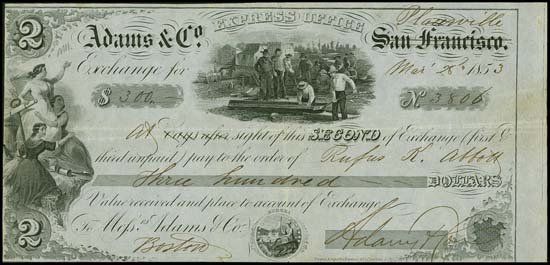 EXPRESS OFFICE
Placerville
2 Adams & Co. San Francisco.
Exchange for Mar 28 1853
$ 300. No 3806
At days after sight of this SECOND of Exchange (first &
third unpaid) pay to the order of Rufus K. Abbott
Three hundred DOLLARS
Value received and place to account of Exchange
To Mess.rs Adams & Co. Adams & Co
Boston
2